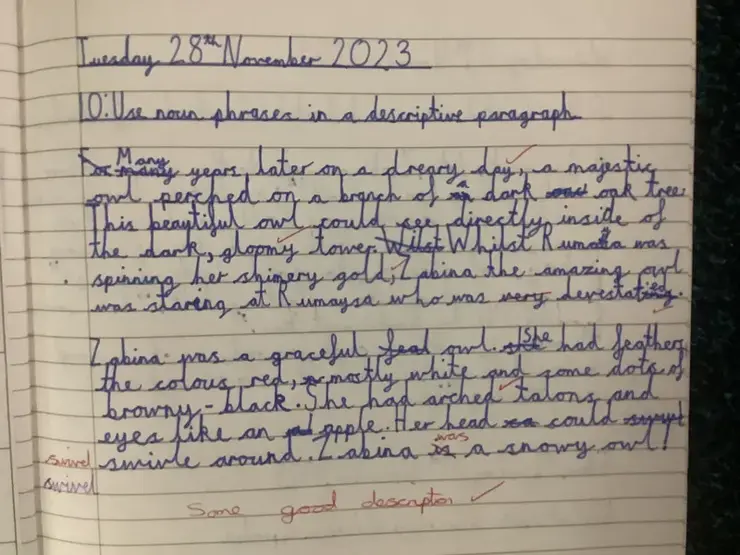 Tuesday 28th November 2023
LO: Use noun phrases in a descriptive paragraph
For many Many years later on a dreary day, a majestic
owl perched on a branch of a dark oak tree.
This beautiful owl could see directly inside of
the dark, gloomy tower. Wilst Whilst Rumaysa was
spinning her shimery gold, Zabina the amazing owl
was staring at Rumaysa who was very devestated.
Zabina was a graceful owl. She had feathers
the colous red, mostly white and some dots of
browny-black. She had arched talons and
eyes like an apple. Her head could
swivel swirle around. Zabina is was a snowy owl!
swivel
Some good description